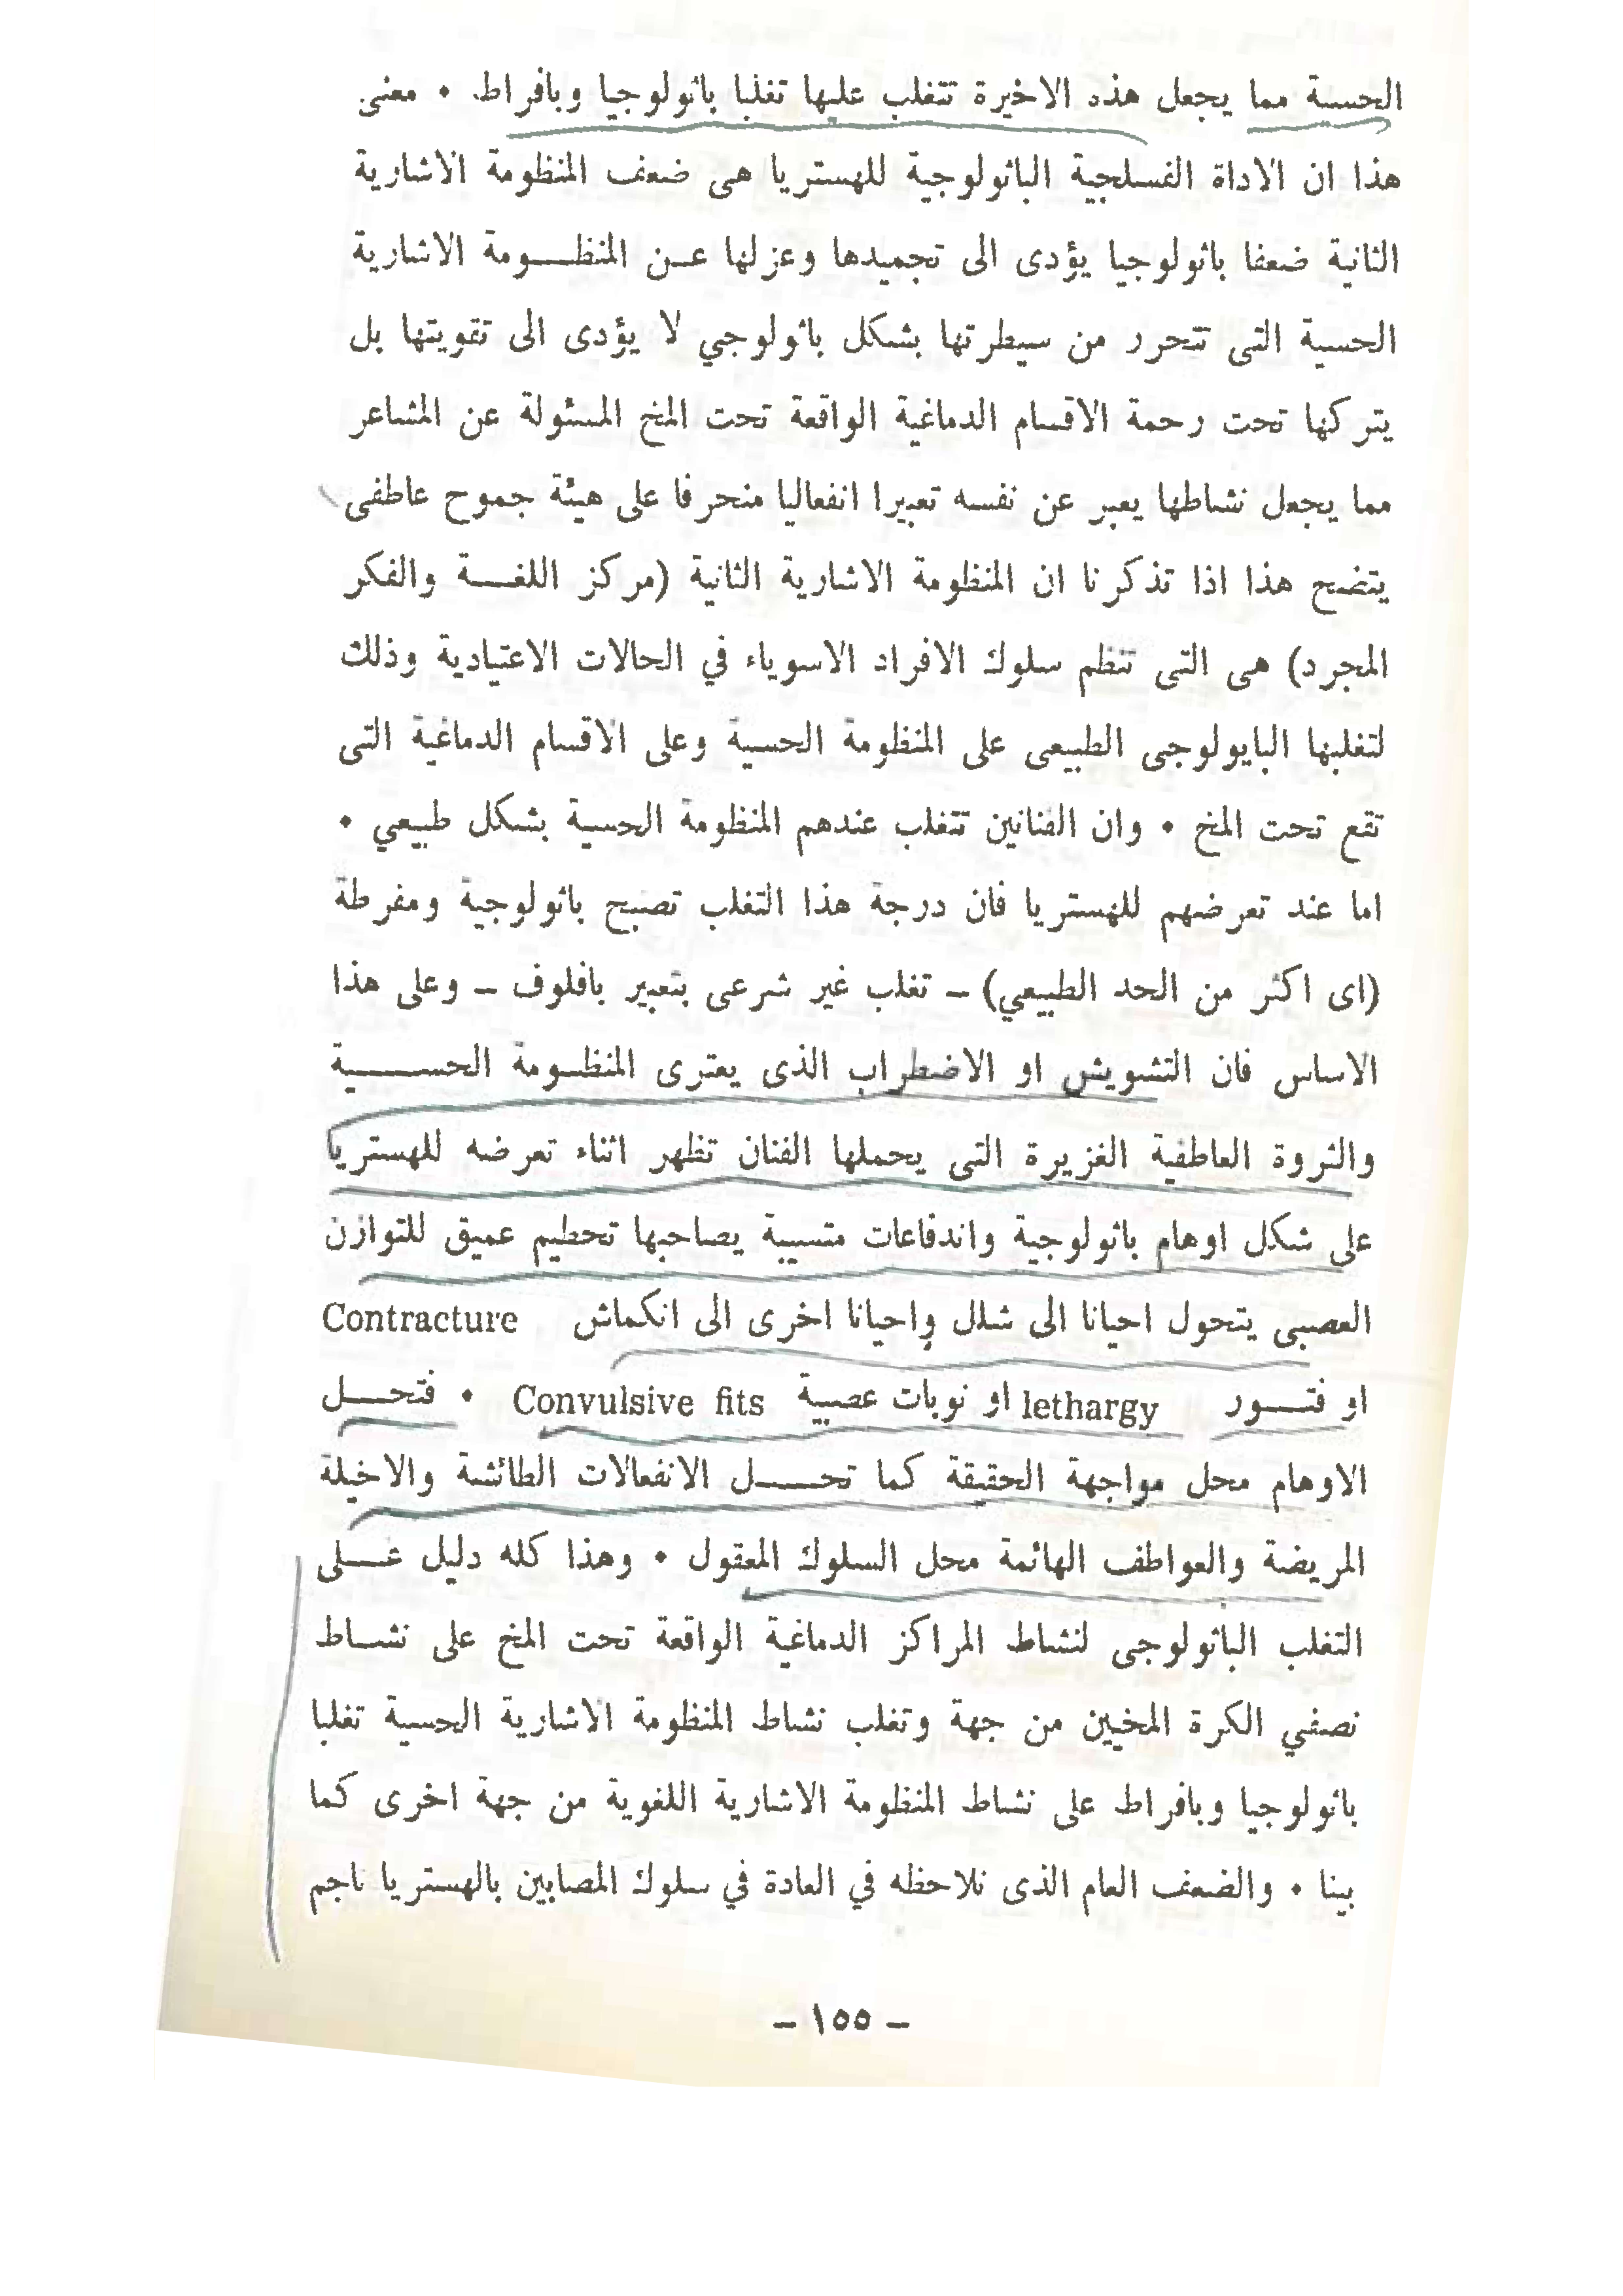 الحسية مما يجعل هذه الاخيرة تتغلب عليها تغلبا باثولوجيا وبافراط ٠ معنى
هذا ان الاداة الفسلجية الباثولوجية للهستريا هى ضعف المنظومة الاشارية
الثانية ضعفا باثولوجيا يؤدى الى تجميدها وعزلها عـن المنظـــومة الاشارية
الحسية التى تتحرر من سيطرتها بشكل باثولوجي لا يؤدى الى تقويتها بل
يتركها تحت رحمة الاقسام الدماغية الواقعة تحت المخ المسئولة عن المشاعر
مما يجعل نشاطها يعبر عن نفسه تعبيرا انفعاليا منحرفا على هيئة جموح عاطفى
يتضح هذا اذا تذكرنا ان المنظومة الاشارية الثانية (مركز اللغـــة والفكر
المجرد) هى التى تنظم سلوك الافراد الاسوياء في الحالات الاعتيادية وذلك
لتغلبها البايولوجى الطبيعى على المنظومة الحسية وعلى الاقسام الدماغية التى
تقع تحت المخ ٠ وان الفنانين تتغلب عندهم المنظومة الحسية بشكل طبيعي ٠
اما عند تعرضهم للهستريا فان درجة هذا التغلب تصبح باثولوجية ومفرطة
(اى اكثر من الحد الطبيعي) ــ تغلب غير شرعى بتعبير بافلوف ــ وعلى هذا
الاساس فان التشويش او الاضطراب الذى يعترى المنظـومة الحســـــية
والثروة العاطفية الغزيرة التى يحملها الفنان تظهر اثناء تعرضه للهستريا
على شكل اوهام باثولوجية واندفاعات متسيبة يصاحبها تحطيم عميق للتوازن
العصبى يتحول احيانا الى شلل واحيانا اخرى الى انكماش Contracture
او فتـــور lethargy او نوبات عصبية Convulsive fits ٠ فتحـــل
الاوهام محل مواجهة الحقيقة كما تحـــــل الانفعالات الطائشة والاخيلة
المريضة والعواطف الهائمة محل السلوك المعقول ٠ وهذا كله دليل عـــلى
التغلب الباثولوجى لنشاط المراكز الدماغية الواقعة تحت المخ على نشـاط
نصفي الكرة المخيين من جهة وتغلب نشاط المنظومة الاشارية الحسية تغلبا
باثولوجيا وبافراط على نشاط المنظومة الاشارية اللغوية من جهة اخرى كما
بينا ٠ والضعف العام الذى نلاحظه في العادة في سلوك المصابين بالهستريا ناجم
ــ ١٥٥ ــ